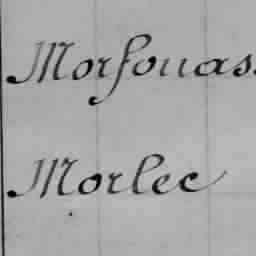 Morfouas.
Morlec